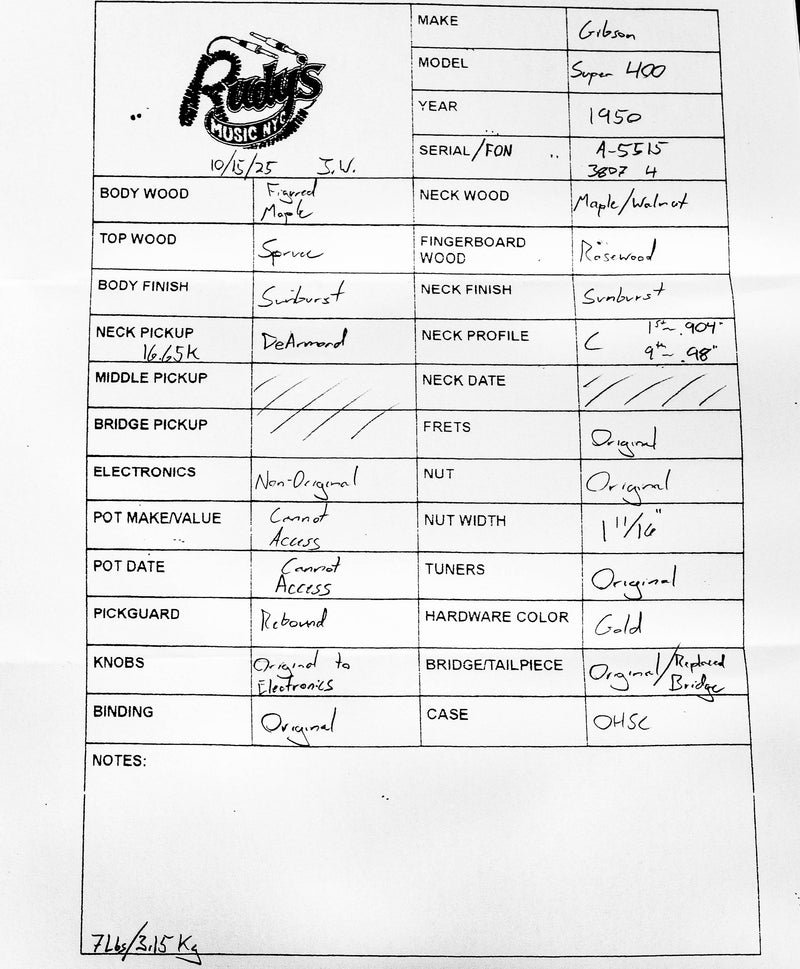 Rudy's
MUSIC NYC
10/15/25 J.W.
MAKE Gibson
MODEL Super 400
YEAR 1950
SERIAL/FON A-5515
3807 4
BODY WOOD Figured
Maple
NECK WOOD Maple/Walnut
TOP WOOD Spruce
FINGERBOARD
WOOD Rosewood
BODY FINISH Sunburst
NECK FINISH Sunburst
NECK PICKUP DeArmond
16.65K
NECK PROFILE C 1st~.904"
9th~.98"
MIDDLE PICKUP
NECK DATE
BRIDGE PICKUP
FRETS Original
ELECTRONICS Non-Original
NUT Original
POT MAKE/VALUE Cannot
Access
NUT WIDTH 1 11/16"
POT DATE Cannot
Access
TUNERS Original
PICKGUARD Rebound
HARDWARE COLOR Gold
KNOBS Original to
Electronics
BRIDGE/TAILPIECE Orginal/Replaced
Bridge
BINDING Original
CASE OHSC
NOTES:
7Lbs/3.15 Kg